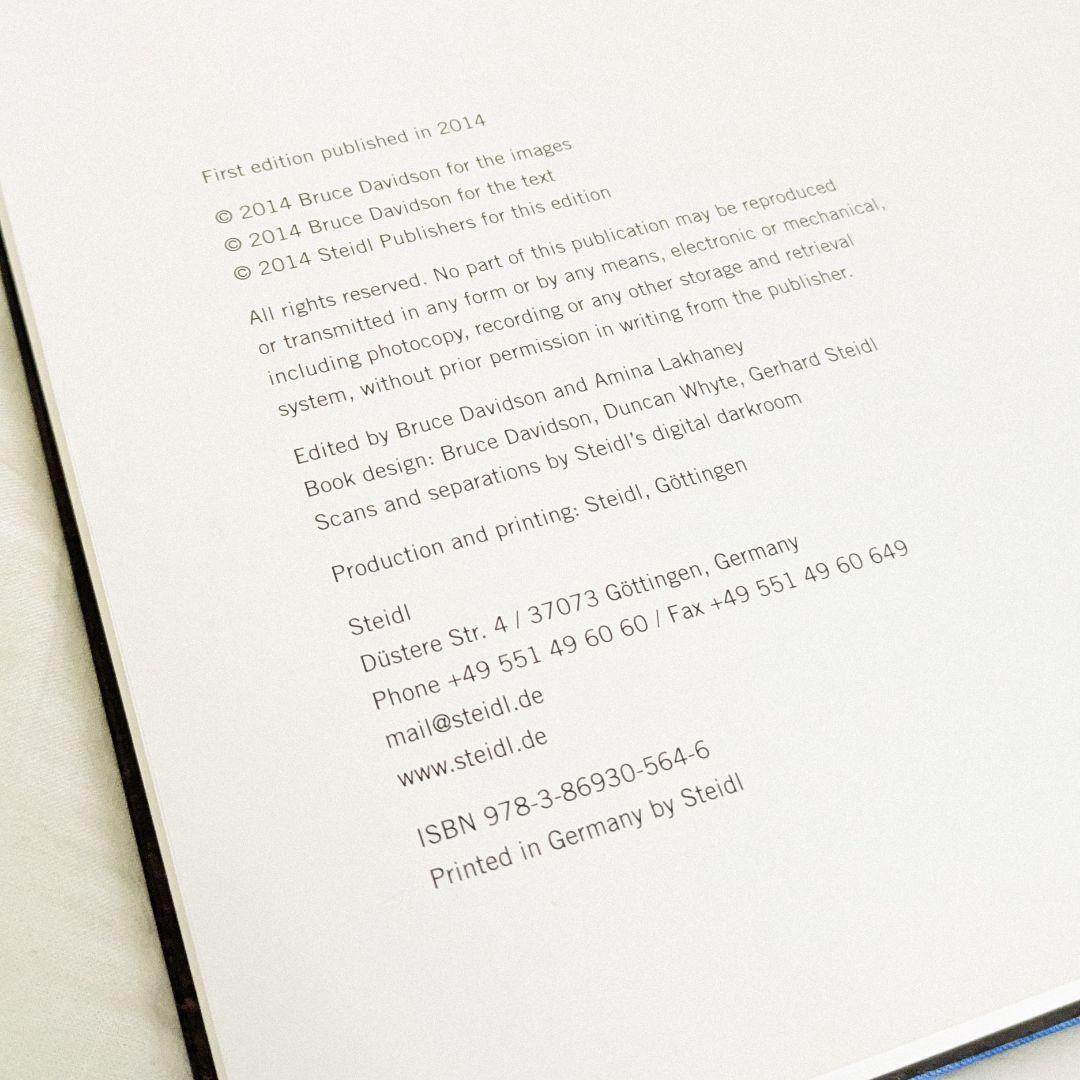 First edition published in 2014
© 2014 Bruce Davidson for the images
© 2014 Bruce Davidson for the text
© 2014 Steidl Publishers for this edition
All rights reserved. No part of this publication may be reproduced
or transmitted in any form or by any means, electronic or mechanical,
including photocopy, recording or any other storage and retrieval
system, without prior permission in writing from the publisher.
Edited by Bruce Davidson and Amina Lakhaney
Book design: Bruce Davidson, Duncan Whyte, Gerhard Steidl
Scans and separations by Steidl's digital darkroom
Production and printing: Steidl, Göttingen
Steidl
Düstere Str. 4 / 37073 Göttingen, Germany
Phone +49 551 49 60 60 / Fax +49 551 49 60 649
mail@steidl.de
www.steidl.de
ISBN 978-3-86930-564-6
Printed in Germany by Steidl